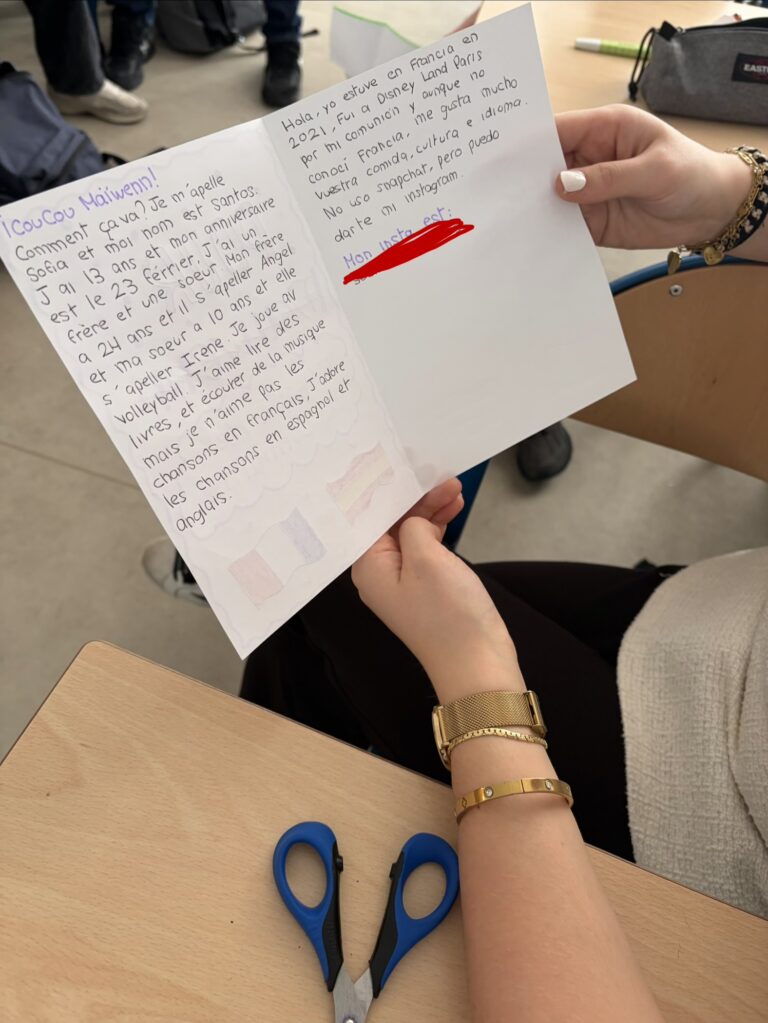 ¡COUCOU Maïwenn!
Comment ça va? Je m'apelle
Sofia et moi nom est Santos.
J'ai 13 ans et mon anniversaire
est le 23 février. J'ai un
frère et une soeur. Mon frère
a 24 ans et il s'apeller Angel
et ma soeur a 10 ans et elle
s'apeller Irene. Je joue av
volleyball. J'aime lire des
livres, et écouter de la musique
mais je n'aime pas les
chansons en français, J'adore
les chansons en espagnol et
anglais.
Hola, yo estuve en Francia en
2021, Fui a Disney Land Paris
por mi comunion y aunque no
conocí Francia, me gusta mucho
vuestra comida, cultura e idioma.
No uso snapchat, pero puedo
darte mi instagram.
Mon Insta est:
EAST